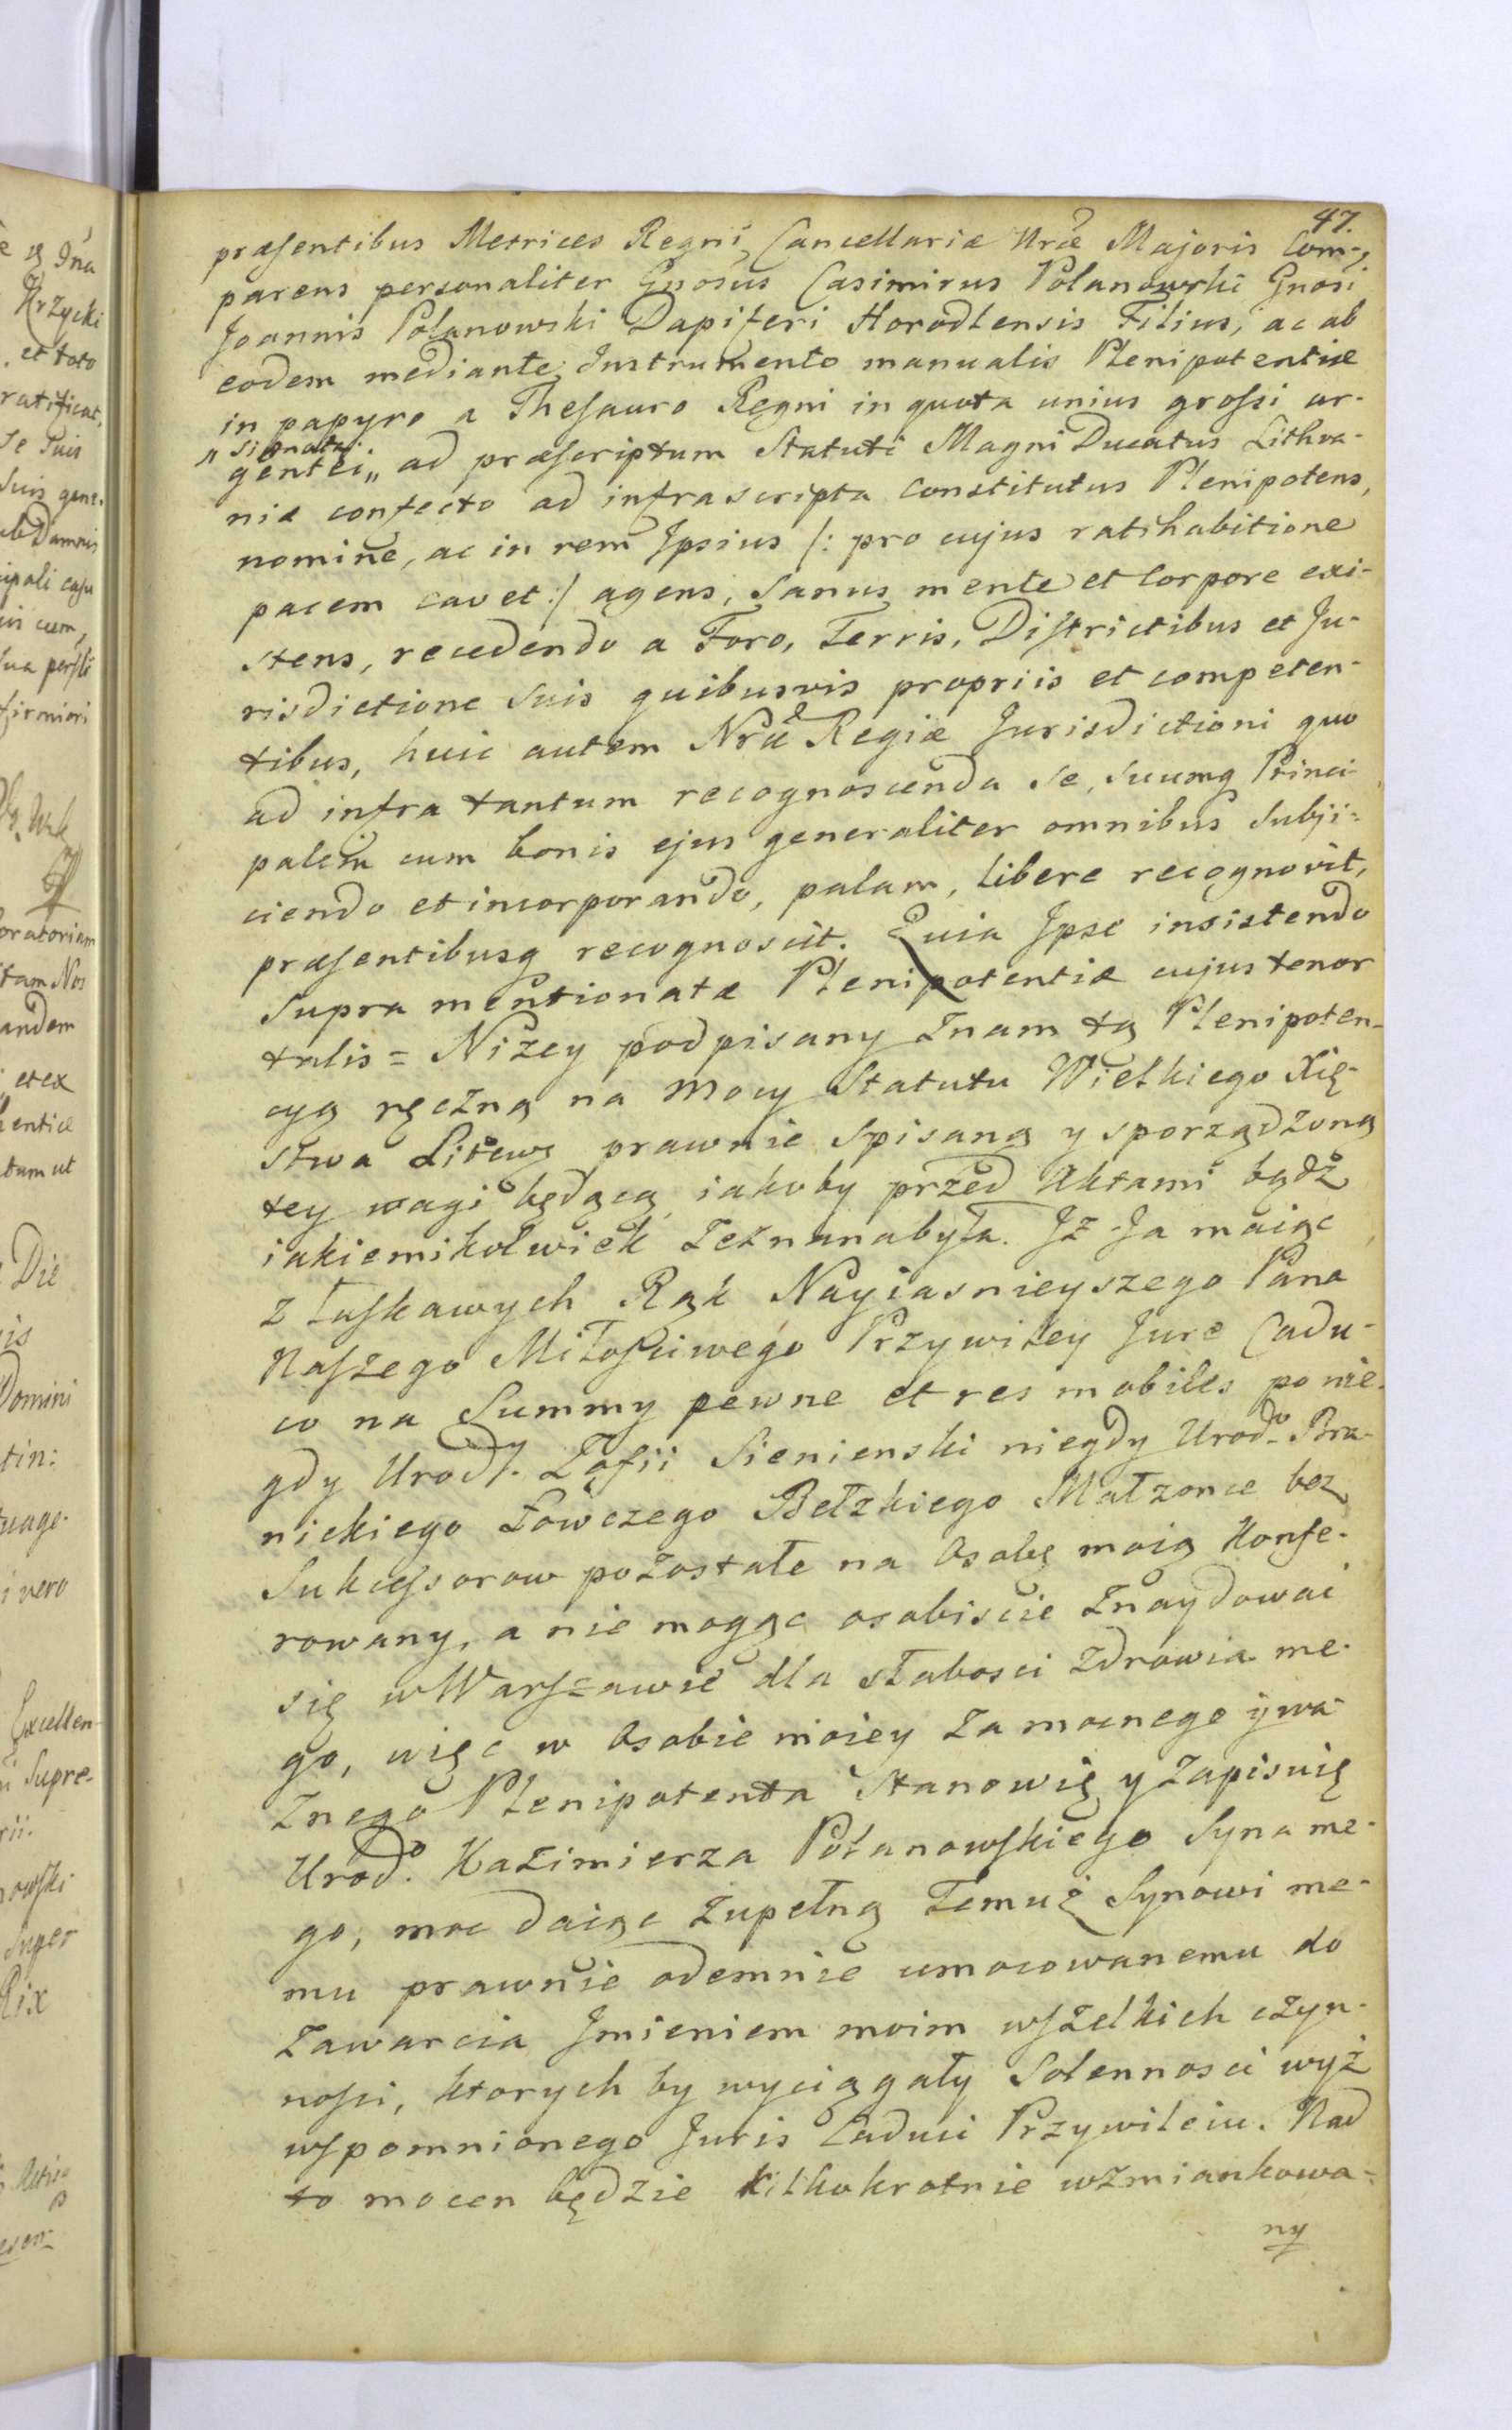 47.
præsentibus Metrices Regni Cancellariæ Nræ Majoris Com-
parens personaliter Gnosus Casimirus Polanowski Gnosi
Joannis Polanowski Dapiferi Horodlensis Filius, ac ab
eodem mediante Instrumento manualis Plenipotentiæ
in papyro a Thesauro Regni in quota unius grossi ar-
„signata
gentei„ ad præscriptum Statuti Magni Ducatus Lithva-
niæ confecto ad infrascripta constitutus Plenipotens,
nomine, ac in rem Ipsius /: pro cujus ratihabitione
pacem cavet :/ agens, sanus mente et corpore exi-
stens, recedendo a Foro, Terris, Districtibus et Ju-
risdictione suis quibusvis propriis et competen-
tibus, huic autem Nræ Regiæ Jurisdictioni quo
ad infra tantum recognoscenda se, suumq Princi-
palem cum bonis ejus generaliter omnibus subji-
ciendo et incorporando, palam, libere recognovit,
præsentibusq recognoscit. Quia Ipse insistendo
supra mentionatæ Plenipotentiæ cujus tenor
talis = Niżey podpisany znam tą Plenipoten-
cyą ręczną na mocy Statutu Wielkiego Xię-
stwa Litewg prawnie spisaną y sporządzoną
tey wagi będącą, iakoby przed Aktami bądź
iakiemikolwiek zeznana była. Iż Ja maiąc
z łaskawych Rąk Nayiasnieyszego Pana
Naszego Miłościwego Przywiley Jure Cadu-
co na Summy pewne et res mobiles po nie-
gdy Urodz. Zofii Sienienski niegdy Urodo Bra-
nickiego Łowczego Bełzkiego Małzonce bez
Sukcessorow pozostałe na Osobę moią Konfe-
rowany, a nie mogąc osobiscie znaydowac
się w Warszawie dla słabosci zdrowia me-
go, więc w Osobie moiey za mocnego y wa-
żnego Plenipotenta stanowię y zapisuię
Urodo. Kazimierza Polanowskiego Syna me-
go, moc daiąc zupełną temuż Synowi me-
mu prawnie odemnie umocowanemu do
zawarcia Imieniem moim wszelkich czyn-
nosci, ktorych by wyciągały Solennosci wyż
wspomnionego Juris Caduci Przywileiu. Nad
to mocen będzie kilkokrotnie wzmiankowa-
ny